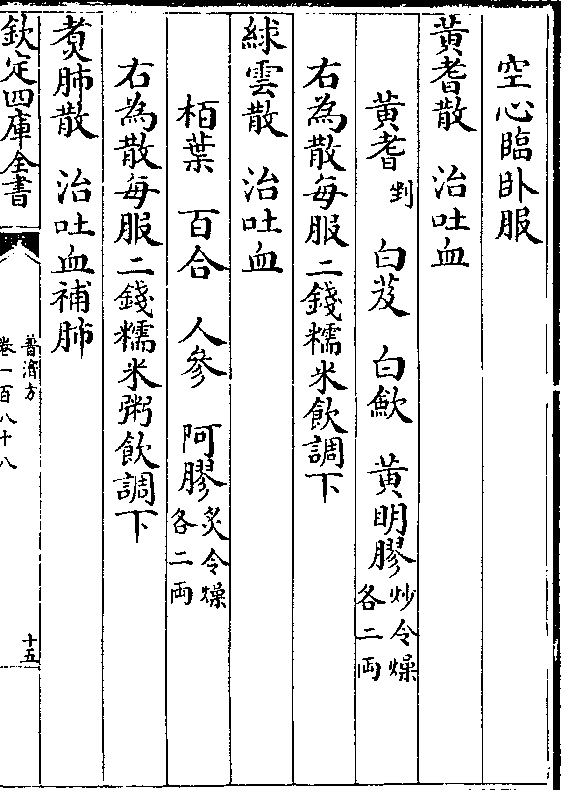 空心臨卧服
黄耆散　治吐血
黄耆剉　白芨　白歛　黄明膠炒令燥各二両
右為散每服二錢糯米飲調下
緑雲散　治吐血
栢葉　百合　人參　阿膠炙令燥各二両
右為散每服二錢糯米粥飲調下
煑肺散　治吐血補肺
欽定四庫全書
普濟方
卷一百八十八
十五